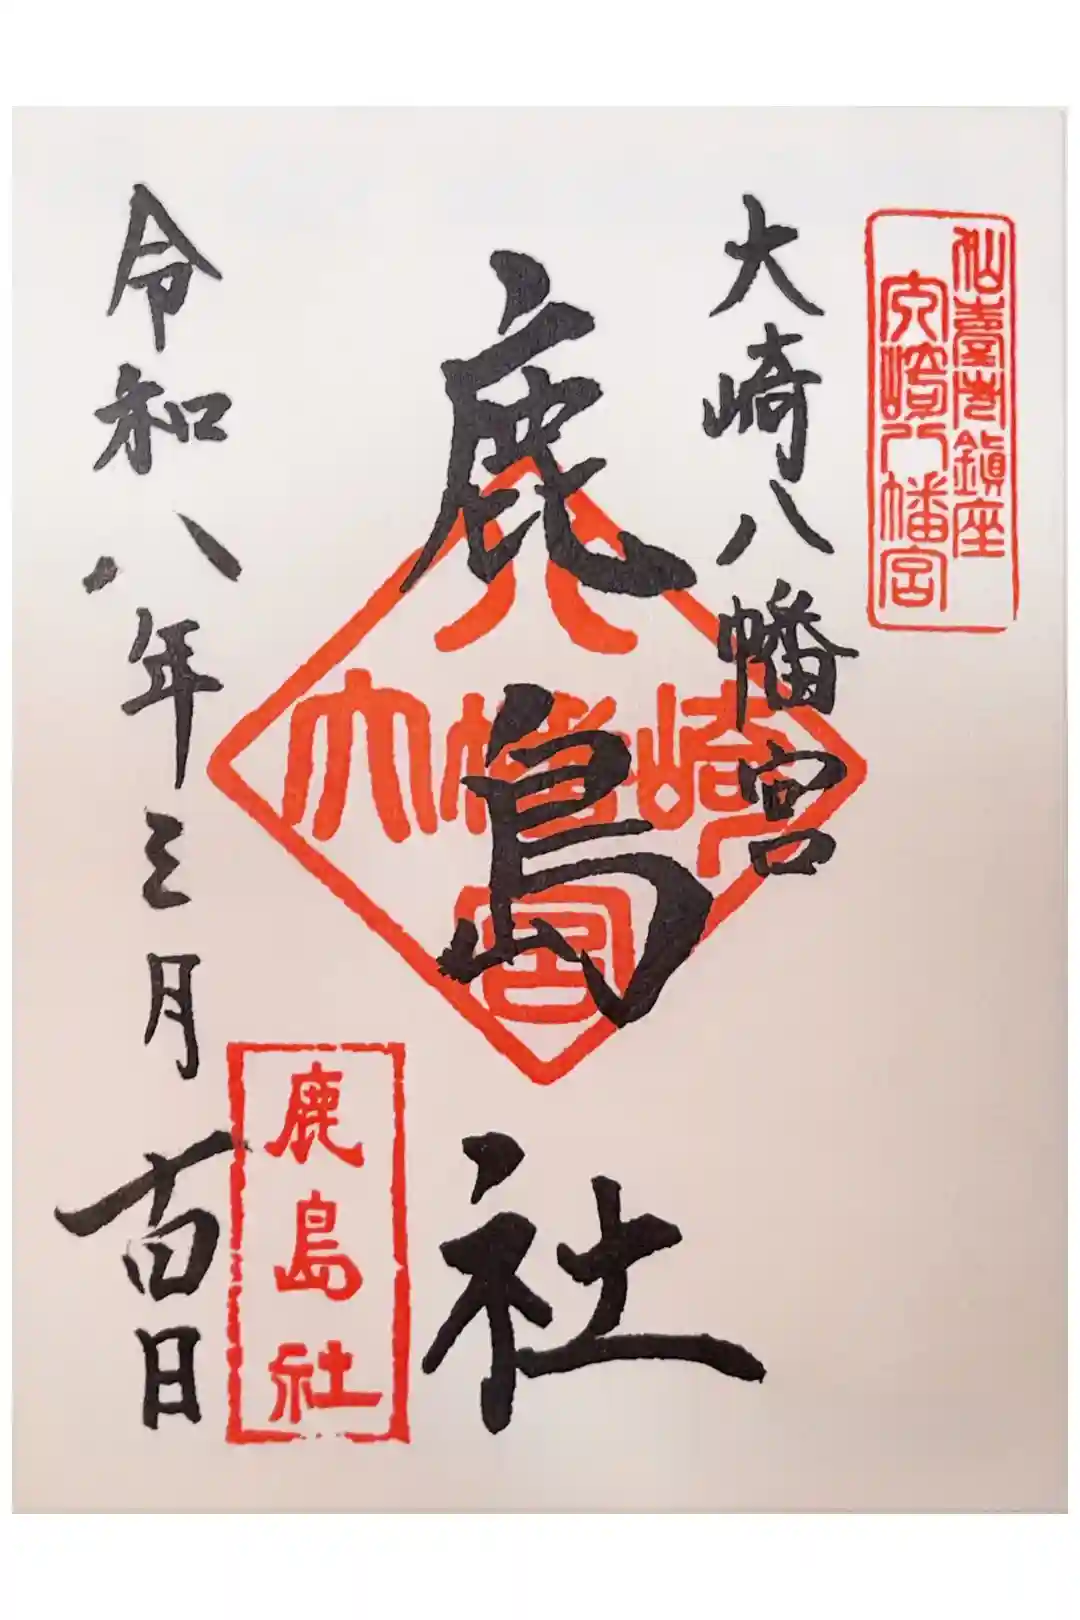 仙臺市鎮座
大崎八幡宮
大崎八幡宮
鹿島社
八
大幡崎
宮
鹿島社
令和八年三月百日